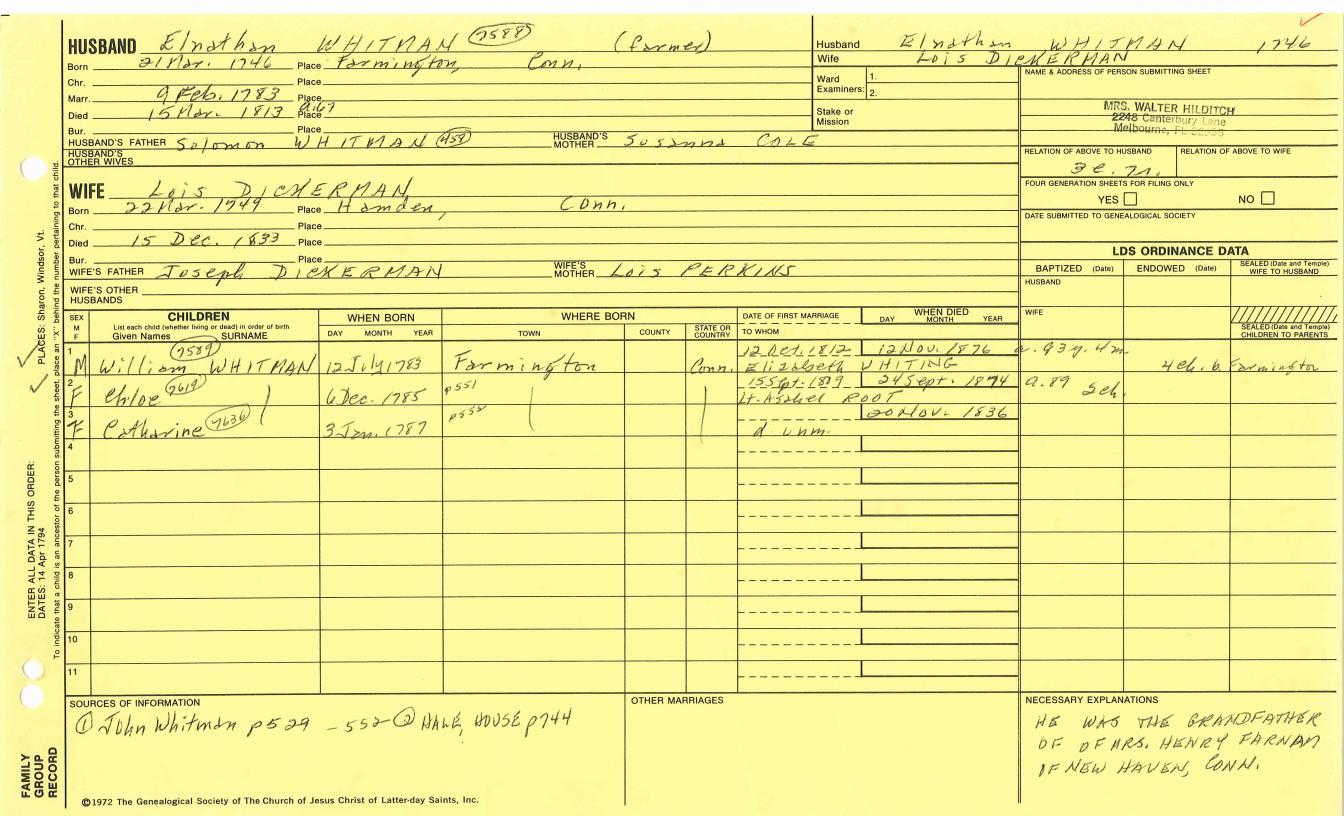 HUSBAND Elnathan WHITMAN 7588 (farmer)
Born 21 Mar. 1746 Place Farmington, Conn.
Chr. Place
Marr. 9 Feb. 1783 Place
Died 15 Mar. 1813 Place a.67
Bur. Place
HUSBAND'S FATHER Solomon WHITMAN HUSBAND'S MOTHER Susanna COLE
HUSBAND'S OTHER WIVES
WIFE Lois DICKERMAN
Born 22 Mar. 1749 Place Hamden, Conn.
Chr. Place
Died 15 Dec. 1833 Place
Bur. Place
WIFE'S FATHER Joseph DICKERMAN WIFE'S MOTHER Lois PERKINS
WIFE'S OTHER HUSBANDS
Husband Elnathan WHITMAN 1746
Wife Lois DICKERMAN
Ward Examiners: 1.
2.
Stake or Mission
NAME & ADDRESS OF PERSON SUBMITTING SHEET
MRS. WALTER HILDITCH
2248 Canterbury Lane
Melbourne, FL
RELATION OF ABOVE TO HUSBAND RELATION OF ABOVE TO WIFE
FOUR GENERATION SHEETS FOR FILING ONLY
YES NO
DATE SUBMITTED TO GENEALOGICAL SOCIETY
LDS ORDINANCE DATA
BAPTIZED (Date) ENDOWED (Date) SEALED (Date and Temple) WIFE TO HUSBAND
HUSBAND
WIFE
SEALED (Date and Temple) CHILDREN TO PARENTS
SEX M F CHILDREN WHEN BORN WHERE BORN DATE OF FIRST MARRIAGE WHEN DIED
List each child (whether living or dead) in order of birth
Given Names SURNAME DAY MONTH YEAR TOWN COUNTY STATE OR COUNTRY TO WHOM DAY MONTH YEAR
1 7589 12 Oct. 1812 12 Nov. 1876 a. 93y. 4m
M William WHITMAN 12 July 1783 Farmington Conn. Elizabeth WHITING 4ch. b. Farmington
2 7619 p551 15 Sept. 1819 24 Sept. 1874 a. 89
F Chloe 6 Dec. 1785 Lt. Asahel ROOT
3 7636 20 Nov. 1836
F Catharine 3 Jan. 1787 d unm.
4
5
6
7
8
9
10
11
SOURCES OF INFORMATION
① John Whitman p529 - 552 ② HALE, HOUSE p744
OTHER MARRIAGES
NECESSARY EXPLANATIONS
HE WAS THE GRANDFATHER
OF OF MRS. HENRY FARNAM
OF NEW HAVEN, CONN.
©1972 The Genealogical Society of The Church of Jesus Christ of Latter-day Saints, Inc.
FAMILY GROUP RECORD
ENTER ALL DATA IN THIS ORDER:
DATES: 14 Apr 1794 PLACES: Sharon, Windsor, Vt.
To indicate that a child is an ancestor of the person submitting the sheet, place an "X" behind the number pertaining to that child.